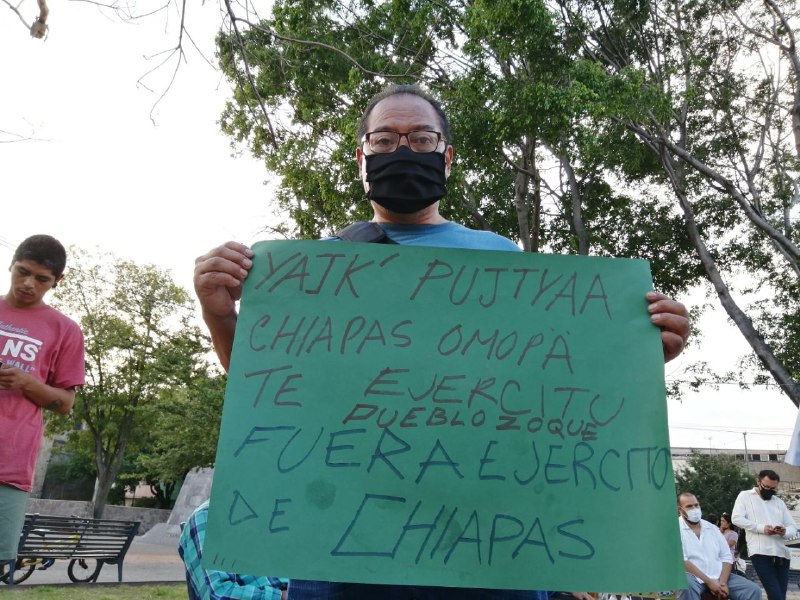 YAJK' PUJTYAA
CHIAPAS OMOPÄ
TE EJERCITU
PUEBLO ZOQUE
FUERA EJERCITO
DE CHIAPAS
....
Authentic
NS
WALL"